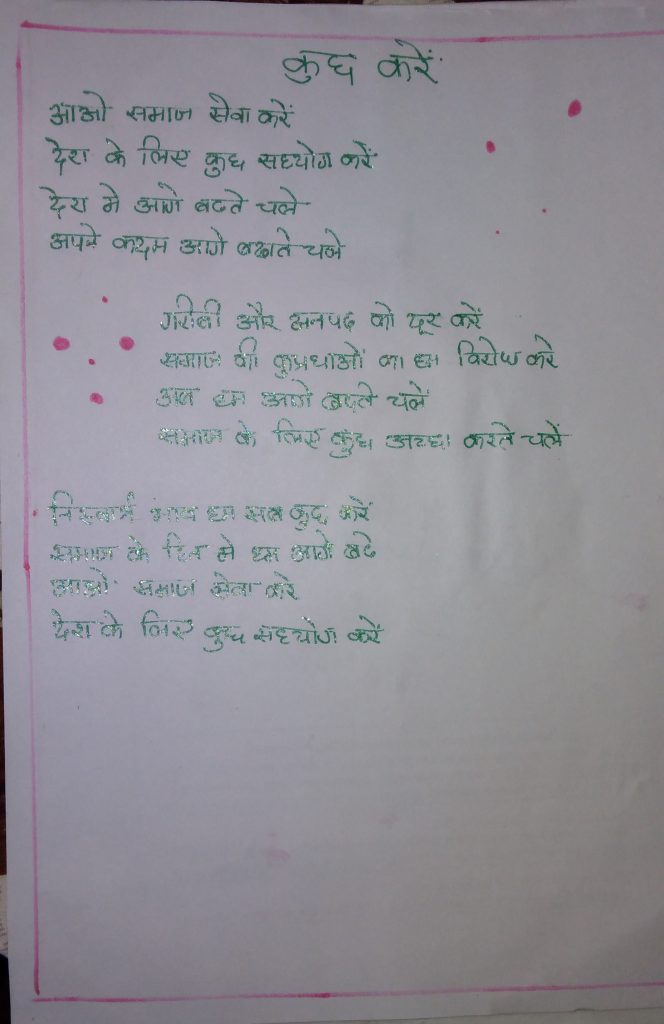 कुछ करें
आओ समाज सेवा करें
देश के लिए कुछ सहयोग करें
देश मे आगे बढते चले
अपने कदम आगे बढाते चले
गरीबी और अनपढ को दूर करें
समाज की कुप्रथाओं का हम विरोध करे
अब हम आगे बढ़ते चलें
समाज के लिए कुछ अच्छा करते चलें
निस्वार्थ भाव हम सब कुछ करें
समाज के हित मे हम आगे बढे
आओ समाज सेवा करे
देश के लिए कुछ सहयोग करें